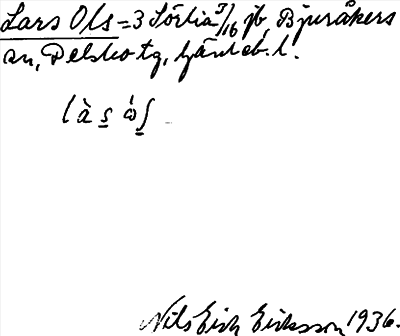 Lars Ols = 3 Sörlia 3/16 jb, Bjuråkers
sn, Delsbo tg, Gävleb. l.
làs̲ ὼʃ̲
Nils Erik Eriksson 1936.